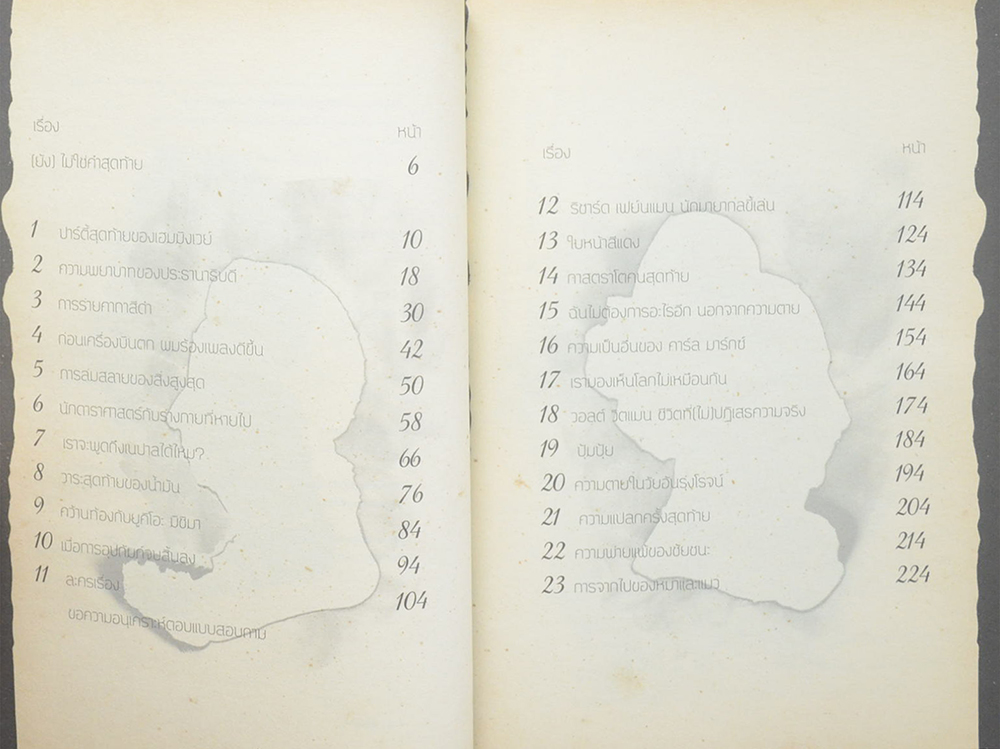 เรื่อง หน้า
(ยัง) ไม่ใช่คำสุดท้าย 6
1 ปาร์ตี้สุดท้ายของเฮมมิงเวย์ 10
2 ความพยาบาทของประธานาธิบดี 18
3 การร่ายคาถาสีดำ 30
4 ก่อนเครื่องบินตก ผมร้องเพลงดีขึ้น 42
5 การล่มสลายของสิ่งสูงสุด 50
6 นักดาราศาสตร์กับร่างกายที่หายไป 58
7 เราจะพูดถึงเนปาลได้ไหม? 66
8 วาระสุดท้ายของน้ำมัน 76
9 คว้านท้องกับยูคิโอะ มิชิมา 84
10 เมื่อการอุปถัมภ์จบสิ้นลง 94
11 ละครเรื่อง 104
ขอความอนุเคราะห์ตอบแบบสอบถาม
เรื่อง หน้า
12 ริชาร์ด เฟย์นแมน นักมายากลขี้เล่น 114
13 ใบหน้าสีแดง 124
14 ศาสตราโตคนสุดท้าย 134
15 ฉันไม่ต้องการอะไรอีก นอกจากความตาย 144
16 ความเป็นอื่นของ คาร์ล มาร์กซ์ 154
17 เรามองเห็นโลกไม่เหมือนกัน 164
18 วอลต์ วิตแมน ชีวิตที่(ไม่)ปฏิเสธความจริง 174
19 ปุ้มปุ้ย 184
20 ความตายในวันอันรุ่งโรจน์ 194
21 ความแปลกครั้งสุดท้าย 204
22 ความพ่ายแพ้ของชัยชนะ 214
23 การจากไปของหมาและแมว 224